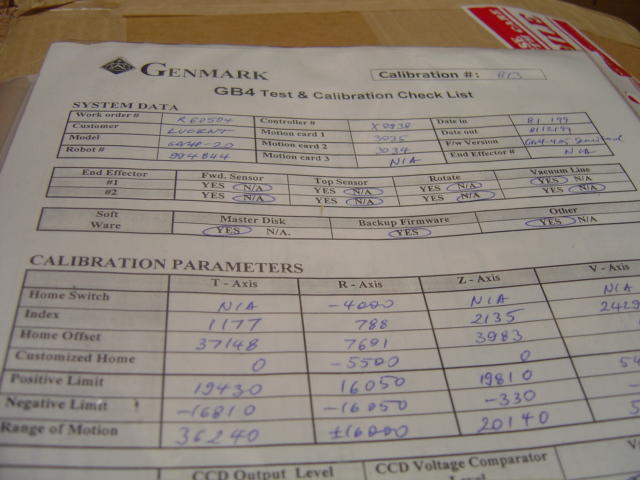 GENMARK
Calibration #: 813
GB4 Test & Calibration Check List
SYSTEM DATA
Work order # R60504 Controller # X0938 Date in
Customer LUCENT Motion card 1 3025 Date out 8/12/99
Model Motion card 2 3034 F/w Version
Robot # 994844 Motion card 3 N/A End Effector # N/A
End Effector Fwd. Sensor Top Sensor Rotate Vacuum Line
#1 YES N/A YES N/A YES N/A YES N/A
#2 YES N/A YES N/A YES N/A YES N/A
Soft Ware Master Disk Backup Firmware Other
YES N/A. YES YES N/A
CALIBRATION PARAMETERS
T - Axis R - Axis Z - Axis V - Axis
Home Switch N/A -4000 N/A N/A
Index 1177 788 2135 2429
Home Offset 37148 7691 3983
Customized Home 0 -5500 0
Positive Limit 19430 16050 19810
Negative Limit -16810 -16050 -330
Range of Motion 36240 ±16000 20140
CCD Output Level CCD Voltage Comparator Level